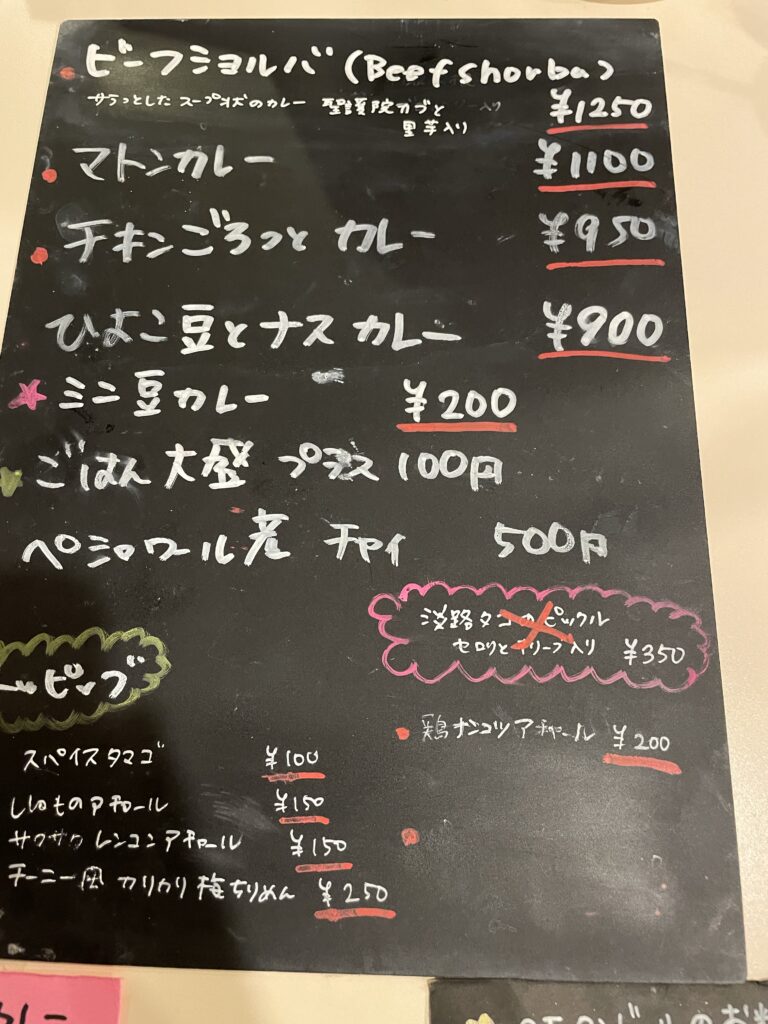 ビーフショルバ (Beef shorba)
サラっとした スープ状のカレー 聖護院カブと
里芋入り ¥1250
マトンカレー ¥1100
チキンごろっと カレー ¥950
ひよこ豆とナス カレー ¥900
ミニ豆カレー ¥200
ごはん大盛 プラス 100円
ペシャワール産 チャイ 500円
淡路タコのピックル
セロリとオリーブ入り ¥350
ッピング
鶏ナンコツアチャール ¥200
スパイスタマゴ ¥100
アチャール ¥150
サクサクレンコンアチャール ¥150
カリカリ梅ちりめん ¥250
カレー